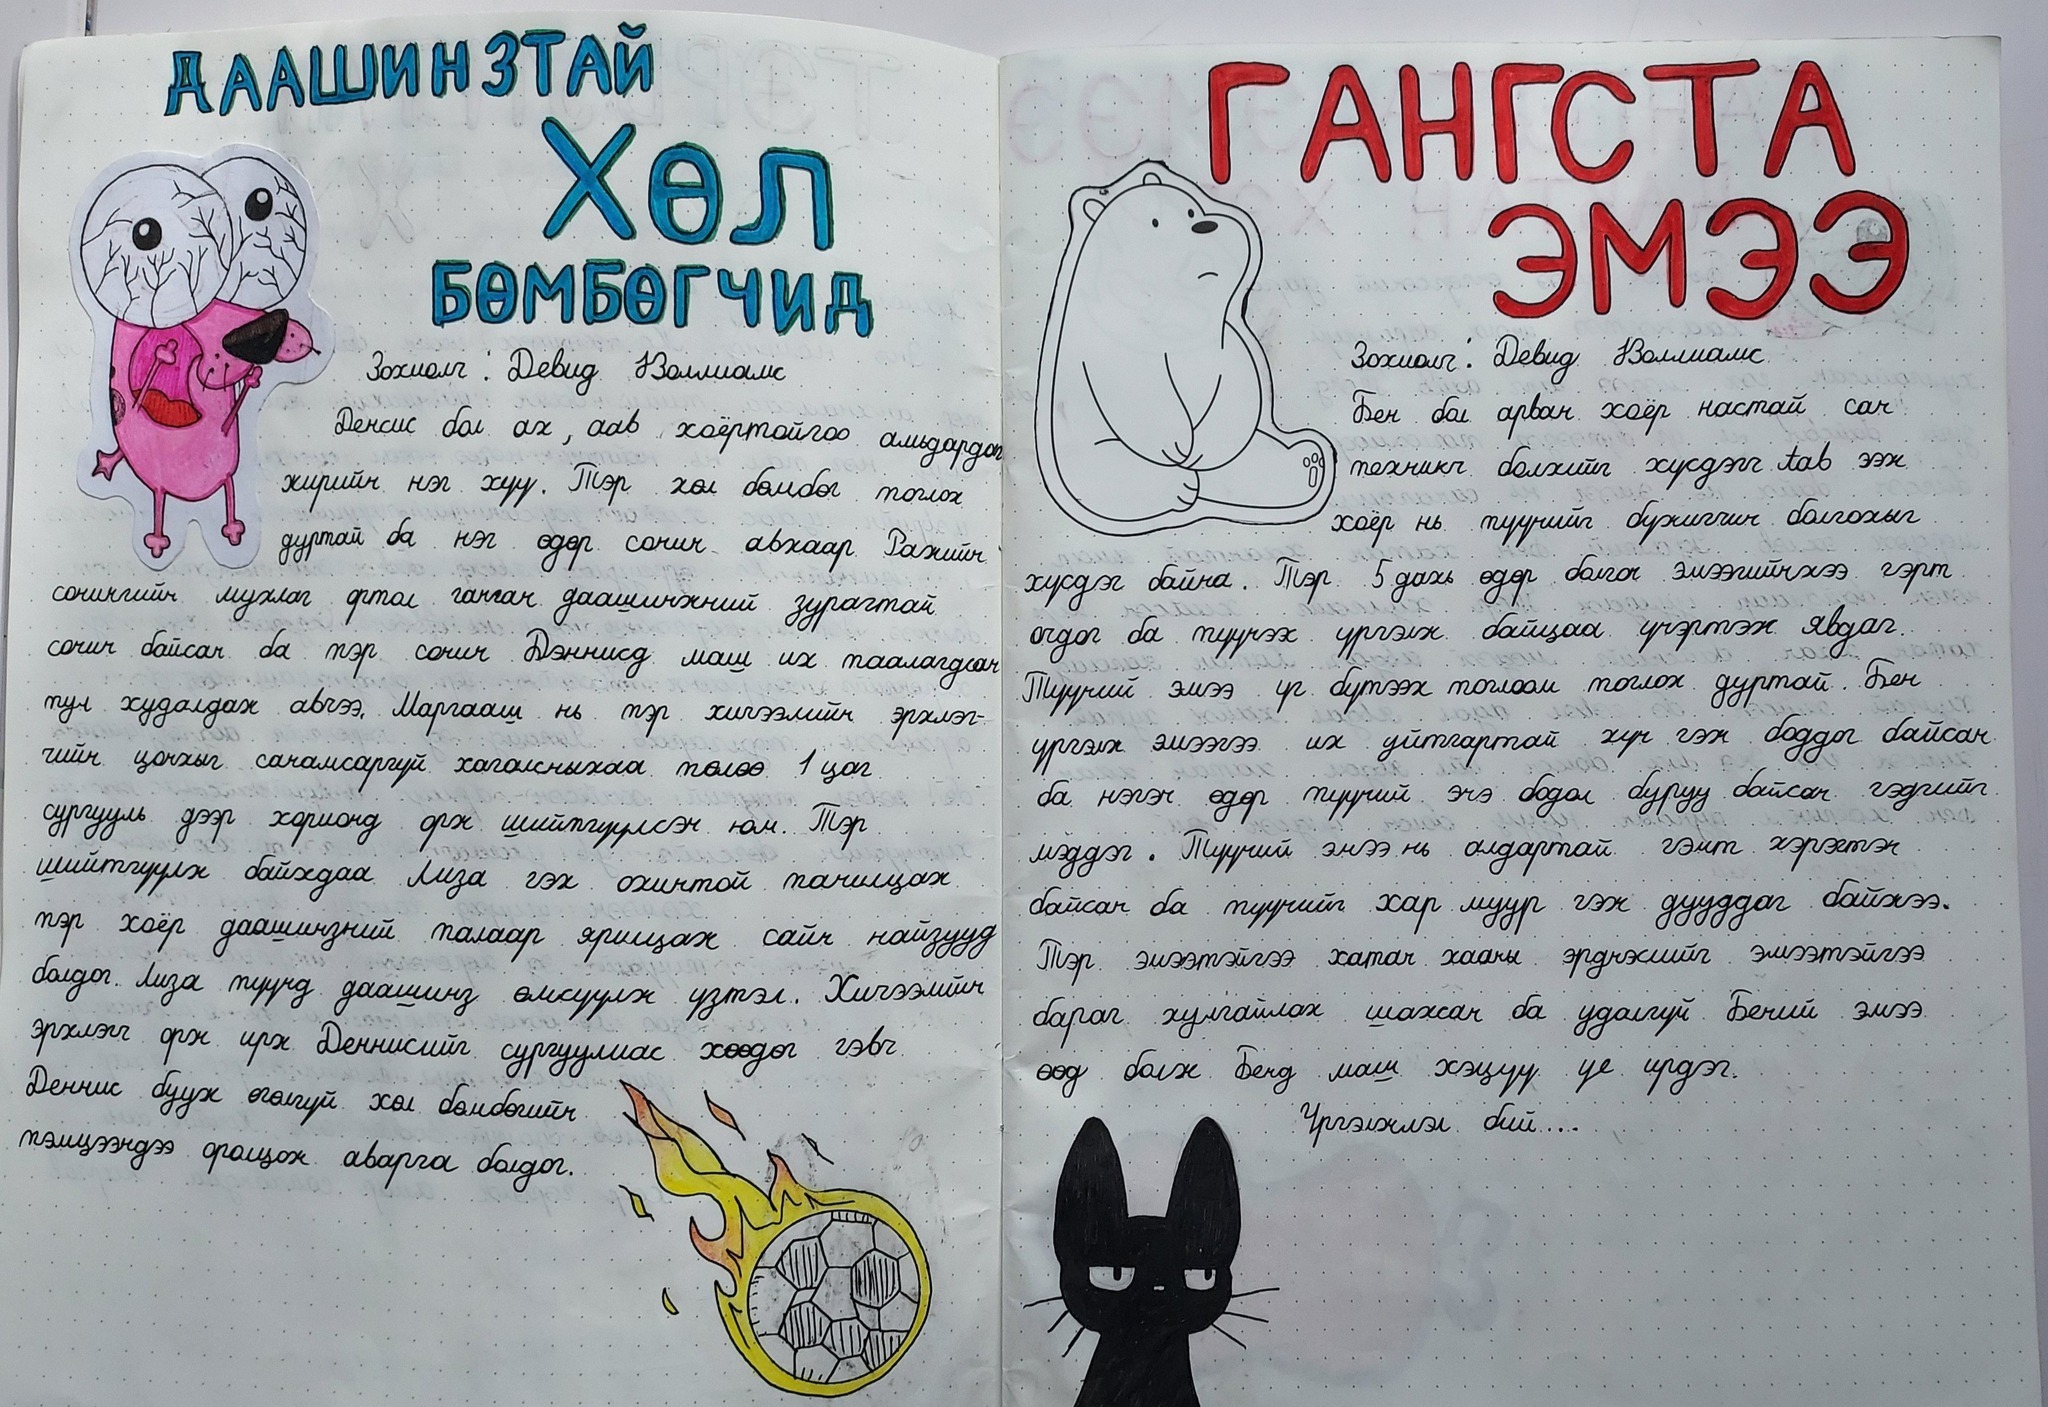 ДААШИНЗТАЙ
ХӨЛ
БӨМБӨГЧИД
Зохиолч: Девид Воллиамс
Денсис бол ах, аав хоёртойгоо амьдардаг
жирийн нэг хүү. Тэр хөл бөмбөг тоглох
дуртай ба нэг өдөр сонин авхаар Ражийн
сонингийн мухлаг ортол ганган даашинжний зурагтай
сонин байсан ба тэр сонин Дэннисд маш их таалагдсан
тул худалдаж авчээ. Маргааш нь тэр хичээлийн эрхлэг-
чийн цонхыг санамсаргүй хагалсныхаа төлөө 1 цаг
сургууль дээр хорионд орж шийтгүүлсэн юм. Тэр
шийтгүүлж байхдаа Лиза гэх охинтой танилцаж
тэр хоёр даашинзний талаар ярилцаж сайн найзууд
болдог. Лиза түүнд даашинз өмсүүлж үзтэл. Хичээлийн
эрхлэгч орж ирж Деннисийг сургуулиас хөөдөг гэвч
Деннис бууж өгөлгүй хөл бөмбөгийн
тэмцээндээ оролцож аварга болдог.
ГАНГСТА
ЭМЭЭ
Зохиолч: Девид Воллиамс
Бен бол арван хоёр настай сан
техникч болхийг хүсдэгч tab ээж
хоёр нь түүнийг бүжигчин болгохыг
хүсдэг байна. Тэр 5 дахь өдөр болгон эмээгийнхээ гэрт
очдог ба түүнэх үргэлж байцаа үнэртэж явдаг.
Түүний эмээ үг бүтээх тоглоом тоглох дуртай. Бен
үргэлж эмээгээ их уйтгартай хүн гэж боддог байсан
ба нэгэн өдөр түүний энэ бодол буруу байсан гэдгийг
мэддэг. Түүний эмээ нь алдартай гэмт хэрэгтэн
байсан ба түүнийг хар муур гэж дууддаг байжээ.
Тэр эмээтэйгээ хатан хааны эрднэсийг эмээтэйгээ
бараг хулгайлах шахсан ба удалгүй Бений эмээ
өөд болж Бенд маш хэцүү үе ирдэг.
Үргэлжлэл бий....